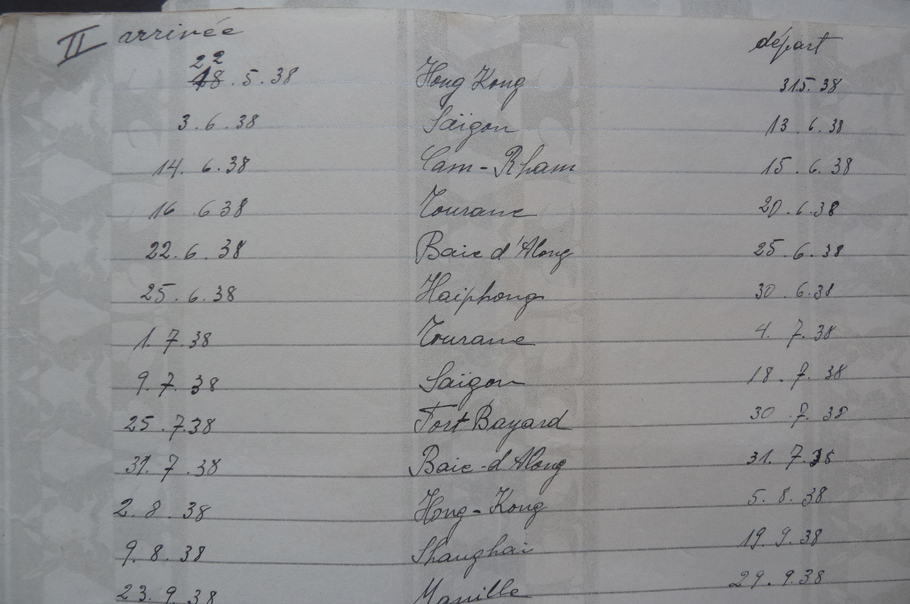 II arrivée départ
22.5.38 Hong Kong 31.5.38
3.6.38 Saïgon 13.6.38
14.6.38 Cam-Rham 15.6.38
16.6.38 Tourane 20.6.38
22.6.38 Baie d'Along 25.6.38
25.6.38 Haiphong 30.6.38
1.7.38 Tourane 4.7.38
9.7.38 Saïgon 18.7.38
25.7.38 Fort Bayard 30.7.38
31.7.38 Baie-d'Along 31.7.38
2.8.38 Hong-Kong 5.8.38
9.8.38 Shanghai 19.9.38
23.9.38 Manille 29.9.38